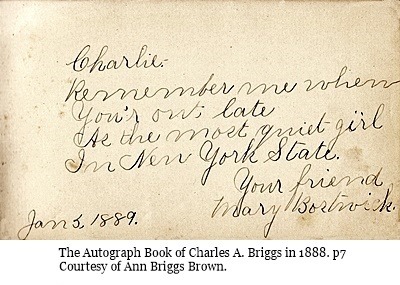 Charlie:-
Remember me when
You'r out late
As the most quiet girl
In New York State.
Your friend
Mary Bostwick.
Jan 5, 1889.
The Autograph Book of Charles A. Briggs in 1888. p7
Courtesy of Ann Briggs Brown.